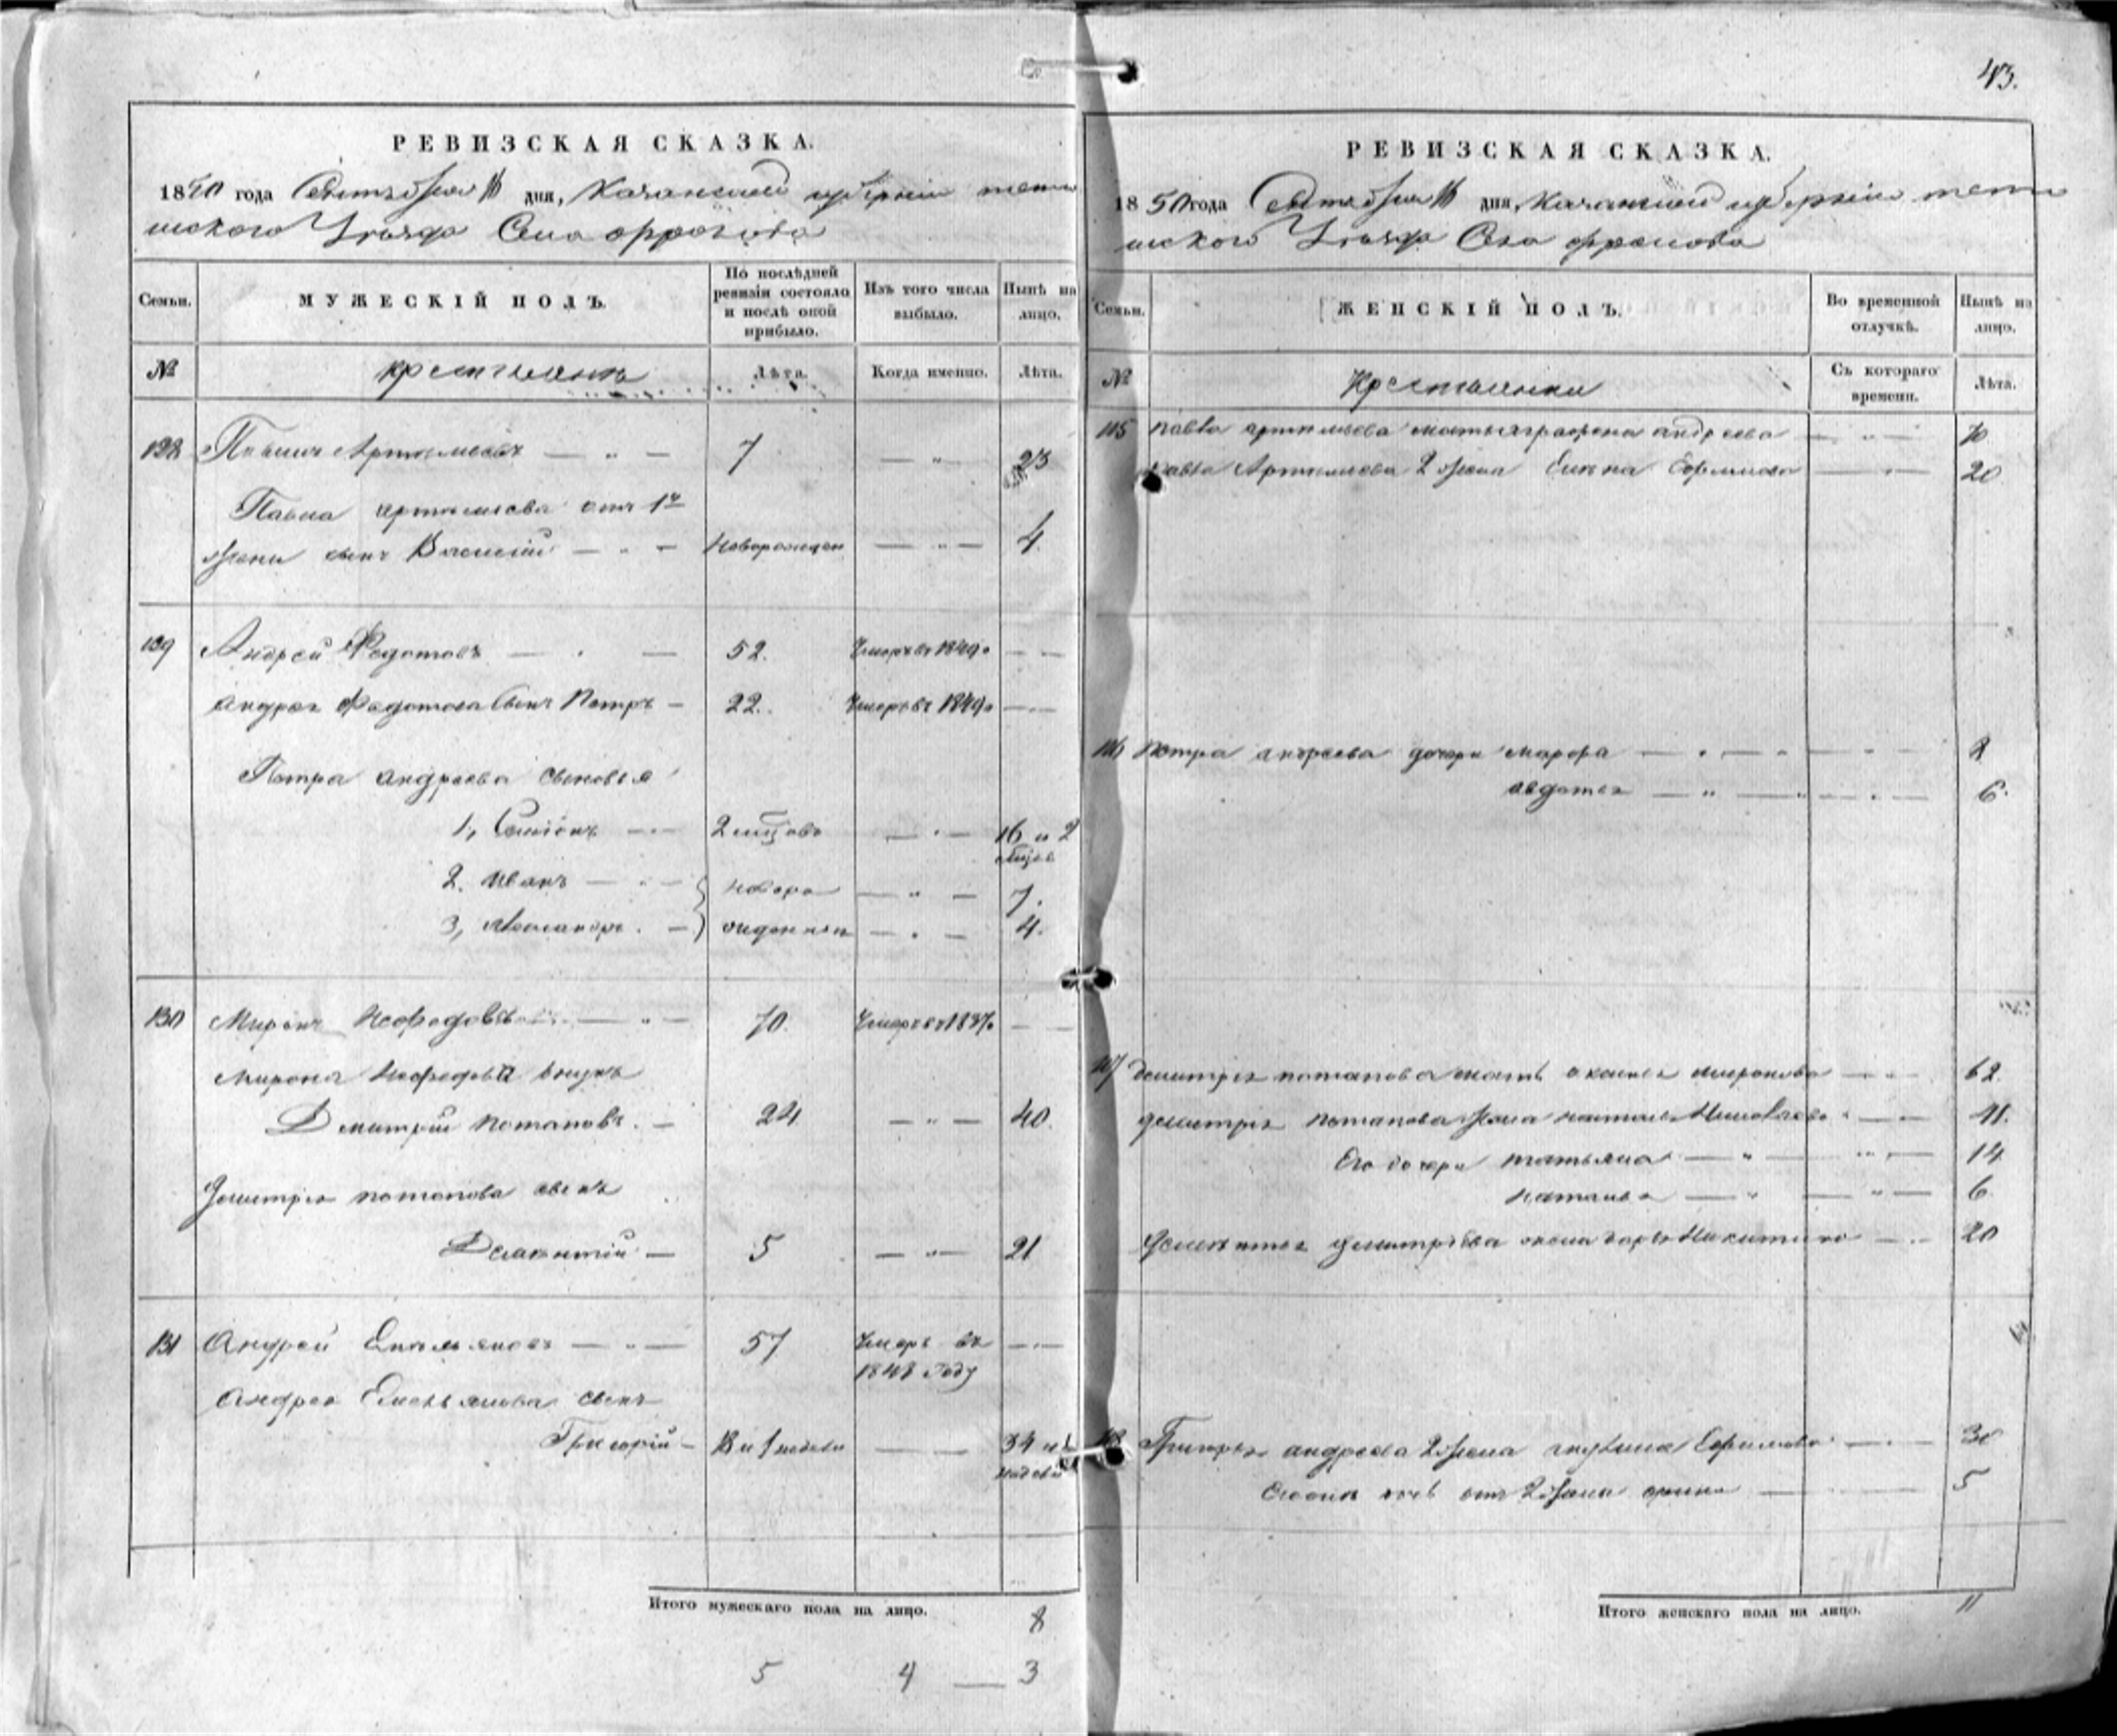 43.
РЕВИЗСКАЯ СКАЗКА.
1850 года Сентября дня, Казанской губерніи тетю
шского Уѣзда Села
Семьи.
МУЖЕСКІЙ ПОЛЪ.
По послѣдней ревизіи состояло и послѣ оной прибыло.
Изъ того числа выбыло.
Нынѣ на лицо.
№
крестьянъ
Лѣта.
Когда именно.
Лѣта.
128 Павелъ Артемьевъ — „ — 7 — „ — 23
Павла артемьева отъ 1й
жены сынъ Василій — „ — новорожден — „ — 4.
129 Андрей Федотовъ — . — 52. Умеръ въ 1849 — —
андрея Федотова Сынъ Петръ — 22. Умеръ въ 1849 — —
Петра андреева сыновья
1, Семіонъ — 2 мѣцовъ — „ — 16 и 2 мѣцов
2. иванъ — „ — новоро — „ — 7.
3, александръ . — жденны — . — 4.
130 Миронъ Нефедовъ — „ — 70. Умеръ въ — —
мирона Нефедова внукъ
Дмитрій потаповъ . — 24 — „ — 40.
Дмитрія потапова сынъ
— 5 — „ — 21
131 Андрей Емельяновъ — „ — 57 Умеръ въ 1848 Году — —
Андрея Емельянова сынъ
Григорій — 18 и 1 недели — — 34 и 1 недели
Итого мужескаго пола на лицо. 8
5 4 — 3
РЕВИЗСКАЯ СКАЗКА.
1850 года Сентября дня, Казанской губерніи тетю
шского Уѣзда Села
Семьи.
ЖЕНСКІЙ ПОЛЪ.
Во временной отлучкѣ.
Нынѣ на лицо.
№
Крестьянки
Съ котораго времени.
Лѣта.
115 павла артемьева мать аграфена андреева — „ — 70
павла Артемьева 2 жена Елена Ефимова — „ — 20
116 петра андреева дочери марфа — . — „ — „ — 2
авдотья — „ — „ — . — 6.
117 дмитрія потапова мать аксинья миронова — „ — 62.
дмитрія потапова жена наталья — „ — 41.
Его дочери татьяна — „ — „ — 14
наталья — „ — „ — 6.
дмитріева жена дарья Никитина — „ — 20
118 Григорья андреева 2 жена акулина Ефимова — „ — 30
отъ 2 жены — — 5
Итого женскаго пола на лицо. 11